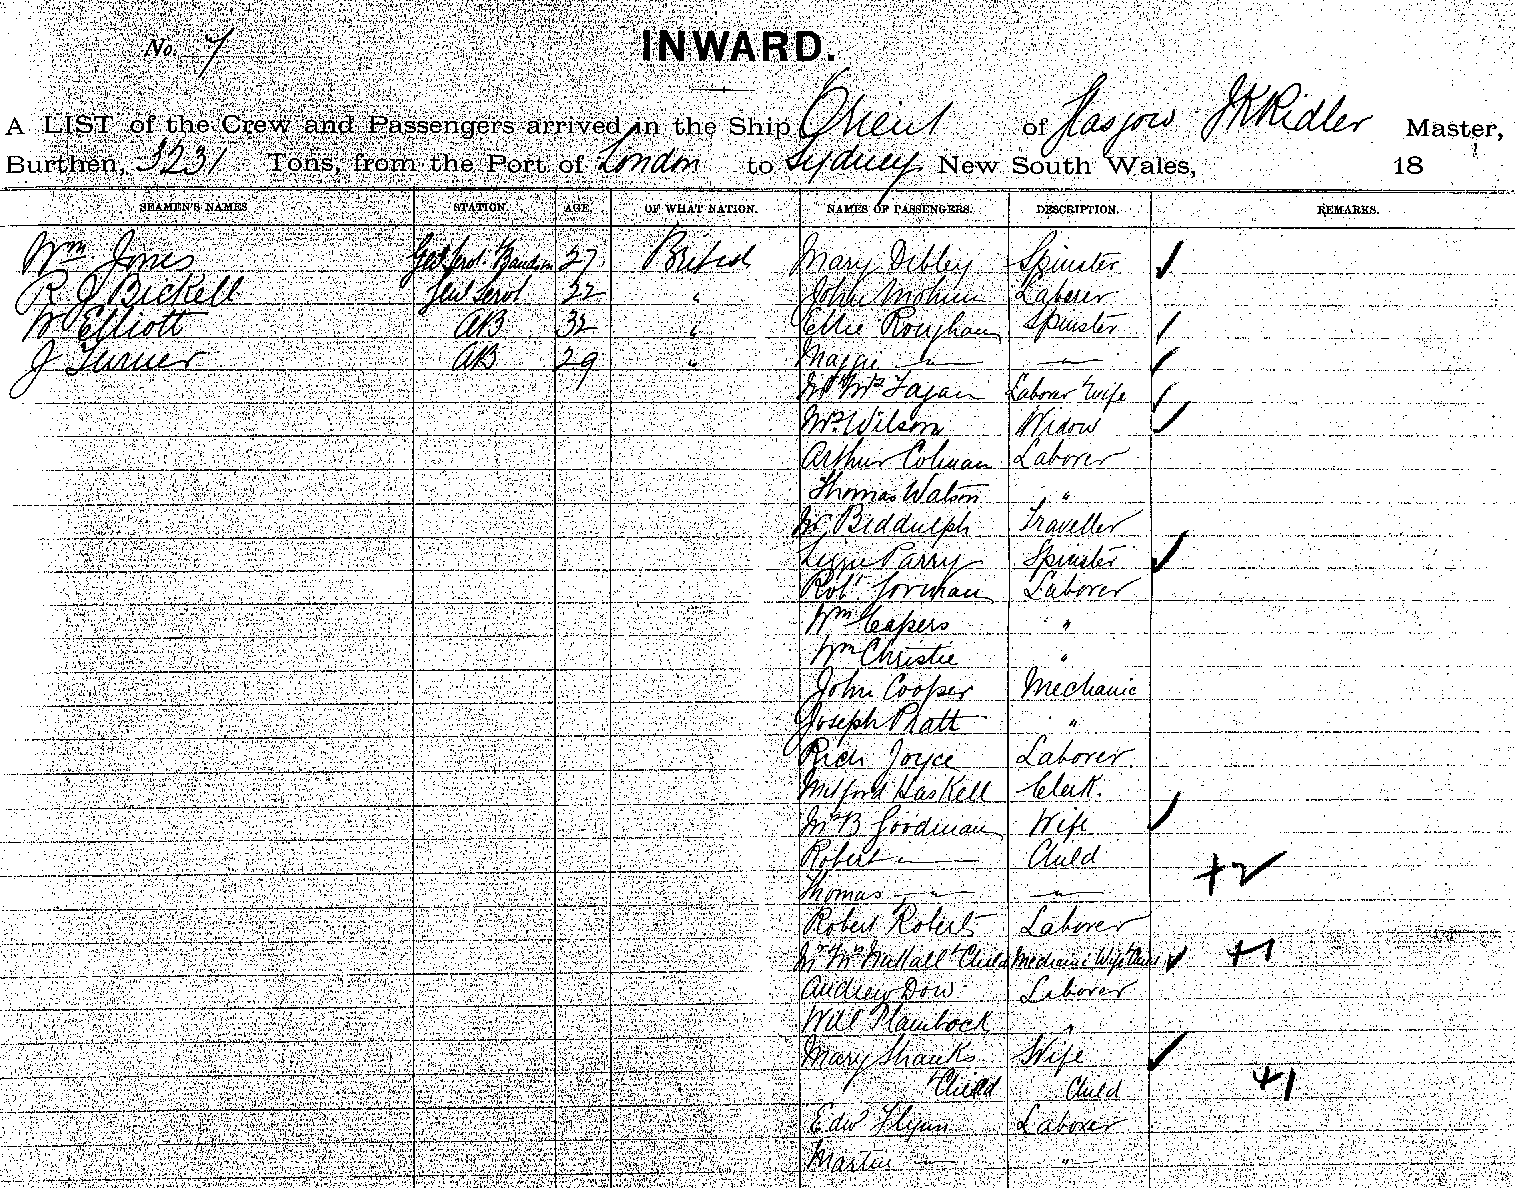 No. 7
INWARD.
A LIST of the Crew and Passengers arrived in the Ship Orient of Glasgow J K Ridler Master,
Burthen, 3231 Tons, from the Port of London to Sydney New South Wales, 18
SEAMEN'S NAMES STATION. AGE. OF WHAT NATION. NAMES OF PASSENGERS. DESCRIPTION. REMARKS.
Wm Jones 27 British Mary Dibley Spinster ✓
R J Bickell Genl Servt 22 " John Laborer
W Elliott AB 32 " Ellie Roughan Spinster ✓
J Turner AB 29 " Maggie — " — — " — ✓
Mr & Mrs Fagan Laborer & wife ✓
Mrs Wilson Widow ✓
Arthur Colman Laborer
Thomas Watson "
Mr Biddulph Traveller
Lizzie Parry Spinster ✓
Robt Gorman Laborer
Wm Capers "
Wm Christie "
John Cooper Mechanic
Joseph Pratt "
Richd Joyce Laborer
Milford Haskell Clerk.
Mrs B Goodman Wife ✓
Robert — " — Child
Thomas — " — — " — +2
Robert Roberts Laborer
Mr & Mrs Nuttall & Child Mechanic Wife & Child ✓ +1
Andrew Dow Laborer
Will Hambock "
Mary Shanks Wife ✓
& Child Child +1
Edwd Flynn Laborer
Martin — " — — " —